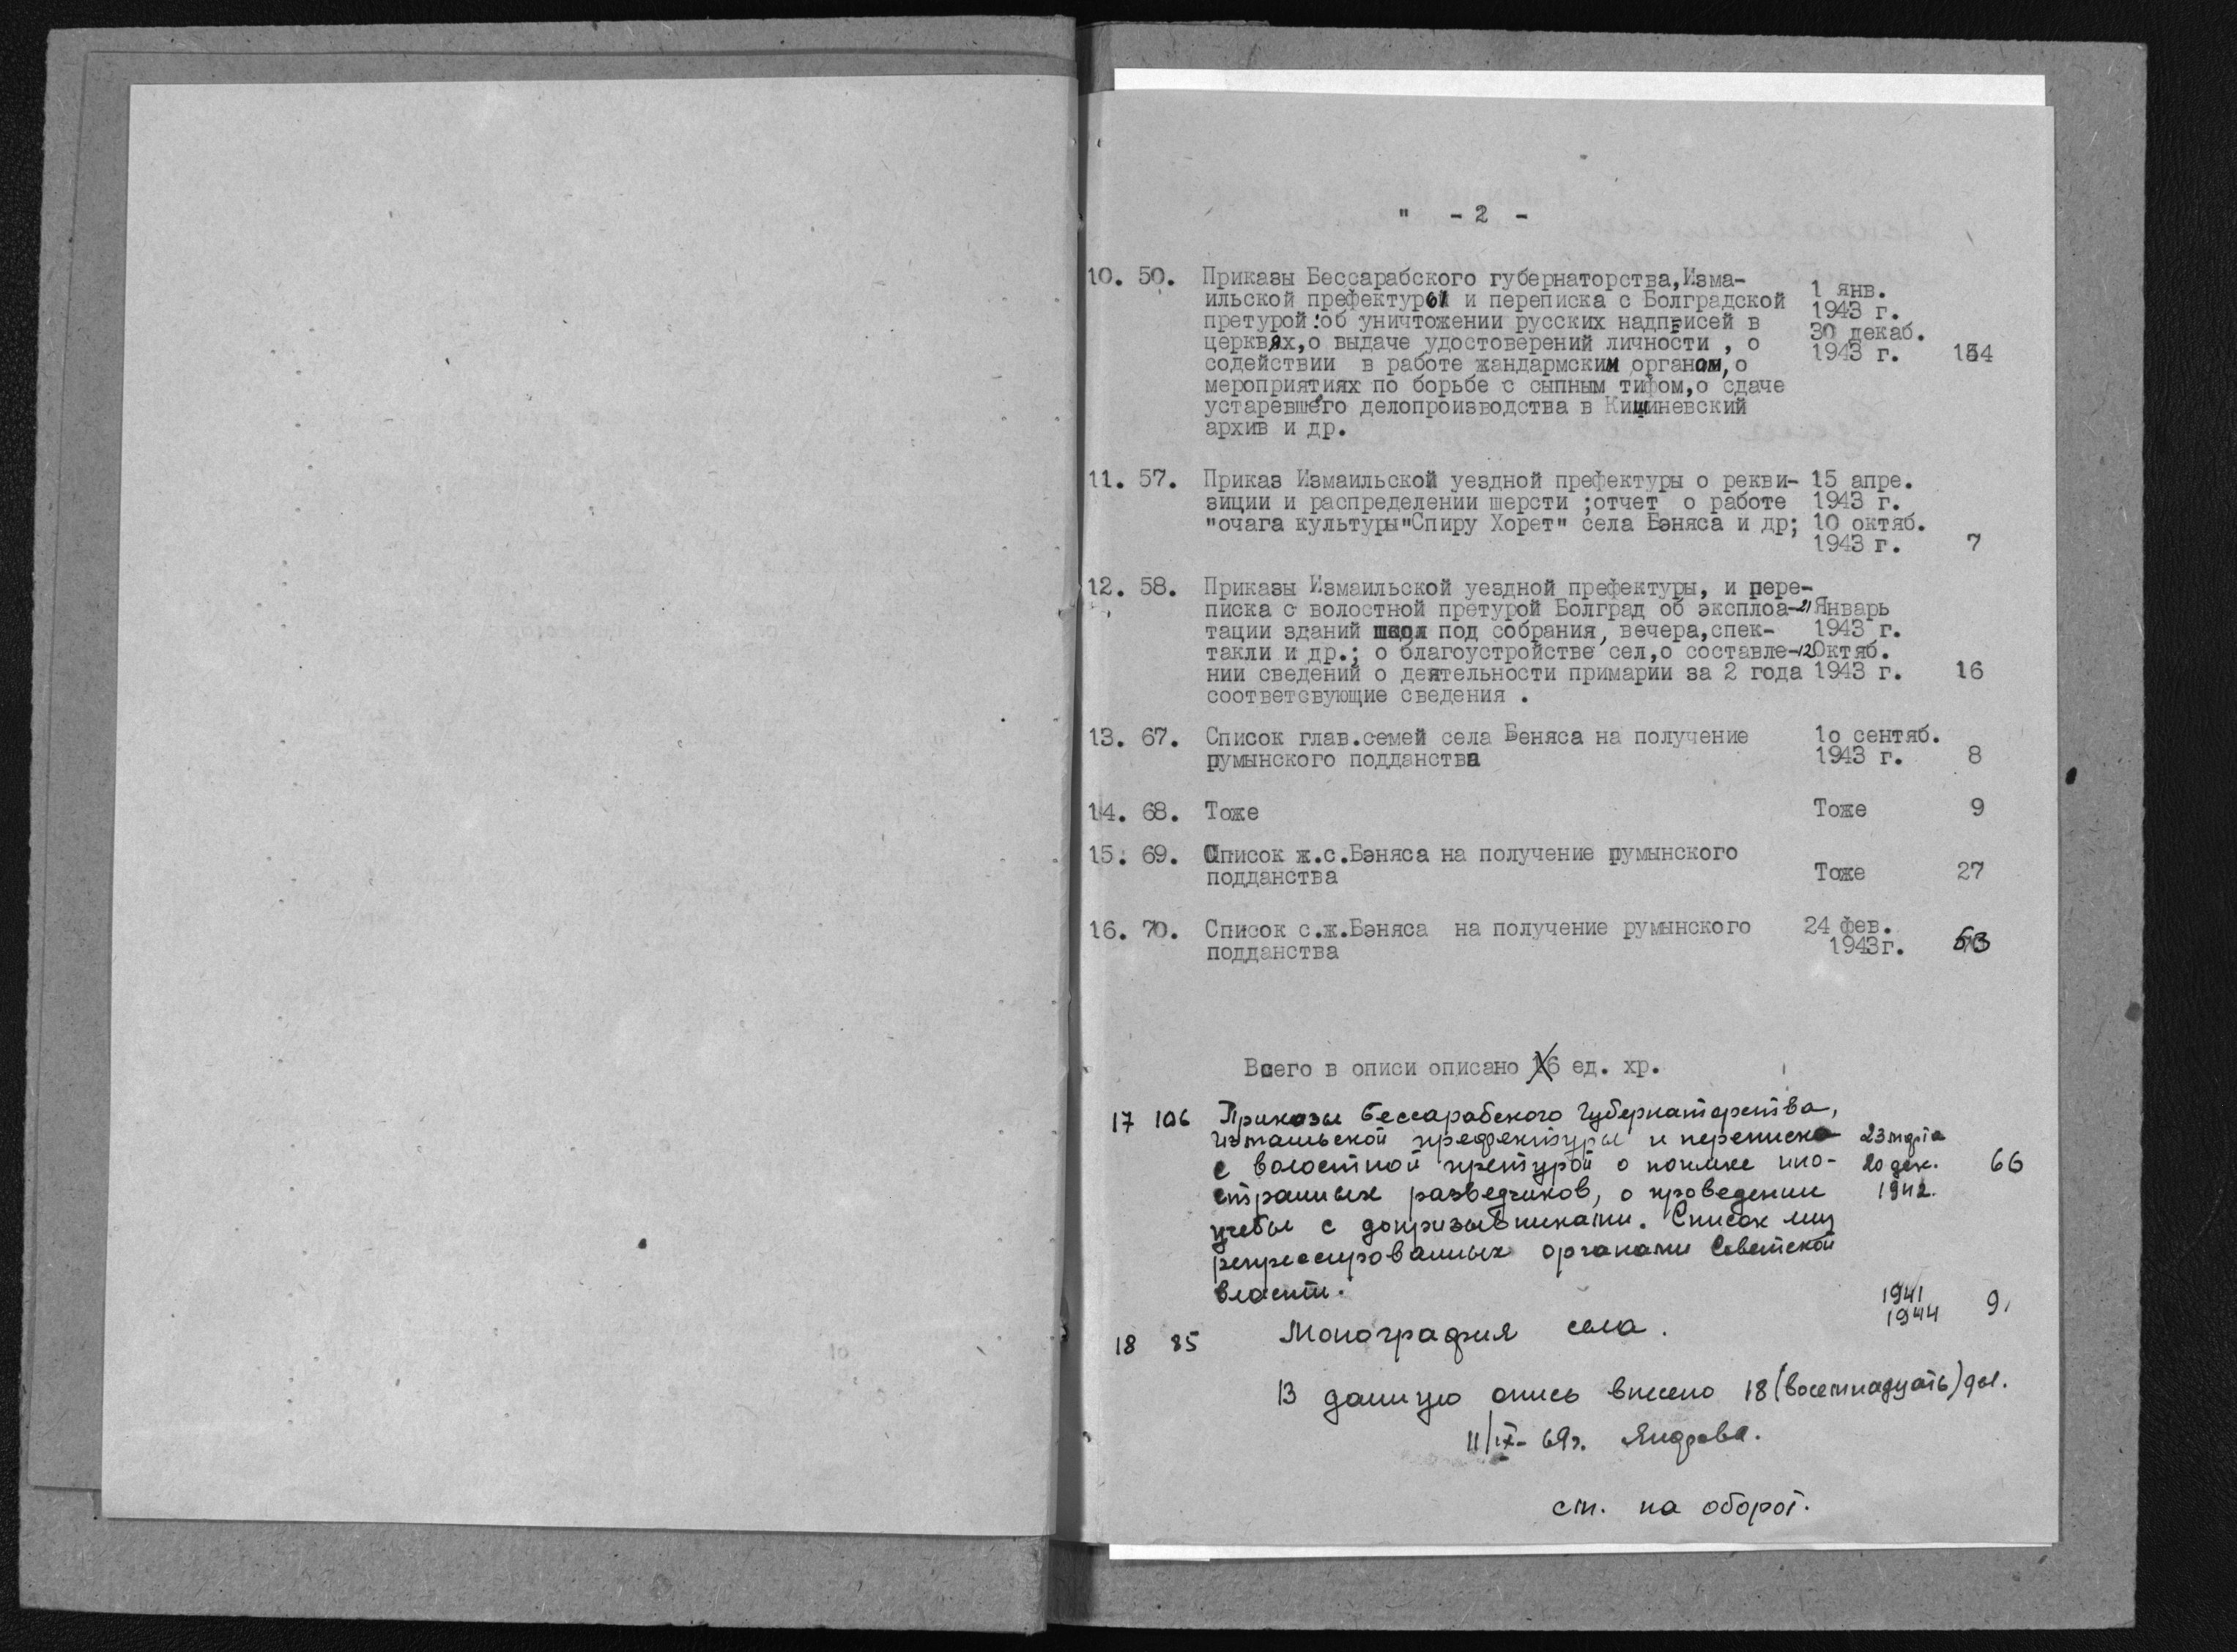 " - 2 -
10. 50. Приказы Бессарабского губернаторства,Изма-
ильской префектуры и переписка с Болградской 1 янв.
претурой:об уничтожении русских надписей в 1943 г.
церквях,о выдаче удостоверений личности , о 30 декаб.
содействии в работе жандармским органам,о 1943 г. 154
мероприятиях по борьбе с сыпным тифом,о сдаче
устаревшего делопроизводства в Кишиневский
архив и др.
11. 57. Приказ Измаильской уездной префектуры о рекви- 15 апре.
зиции и распределении шерсти ;отчет о работе 1943 г.
"очага культуры"Спиру Хорет" села Бэняса и др; 10 октяб.
1943 г. 7
12. 58. Приказы Измаильской уездной префектуры, и пере-
писка с волостной претурой Болград об эксплоа- 21 Январь
тации зданий школ под собрания, вечера,спек- 1943 г.
такли и др.; о благоустройстве сел,о составле- 12 Октяб.
нии сведений о деятельности примарии за 2 года 1943 г. 16
соответсвующие сведения .
13. 67. Список глав.семей села Беняса на получение 1о сентяб.
румынского подданства 1943 г. 8
14. 68. Тоже Тоже 9
15. 69. Список ж.с.Бэняса на получение румынского
подданства Тоже 27
16. 70. Список с.ж.Бэняса на получение румынского 24 фев.
подданства 1943г. 53
Всего в описи описано 16 ед. хр.
17 106 Приказы Бессарабского Губернаторства,
Измаильской префектуры и переписка 23 марта
с волостной претурой о поимке ино- 20 дек. 66
странных разведчиков, о проведении 1942.
учебы с допризывниками. Список лиц
репрессированных органами Советской
власти.
1941
1944 9
18 85 Монография села.
В данную опись внесено 18 (восемнадцать) дел.
11/IX-69г.
см. на оборот.